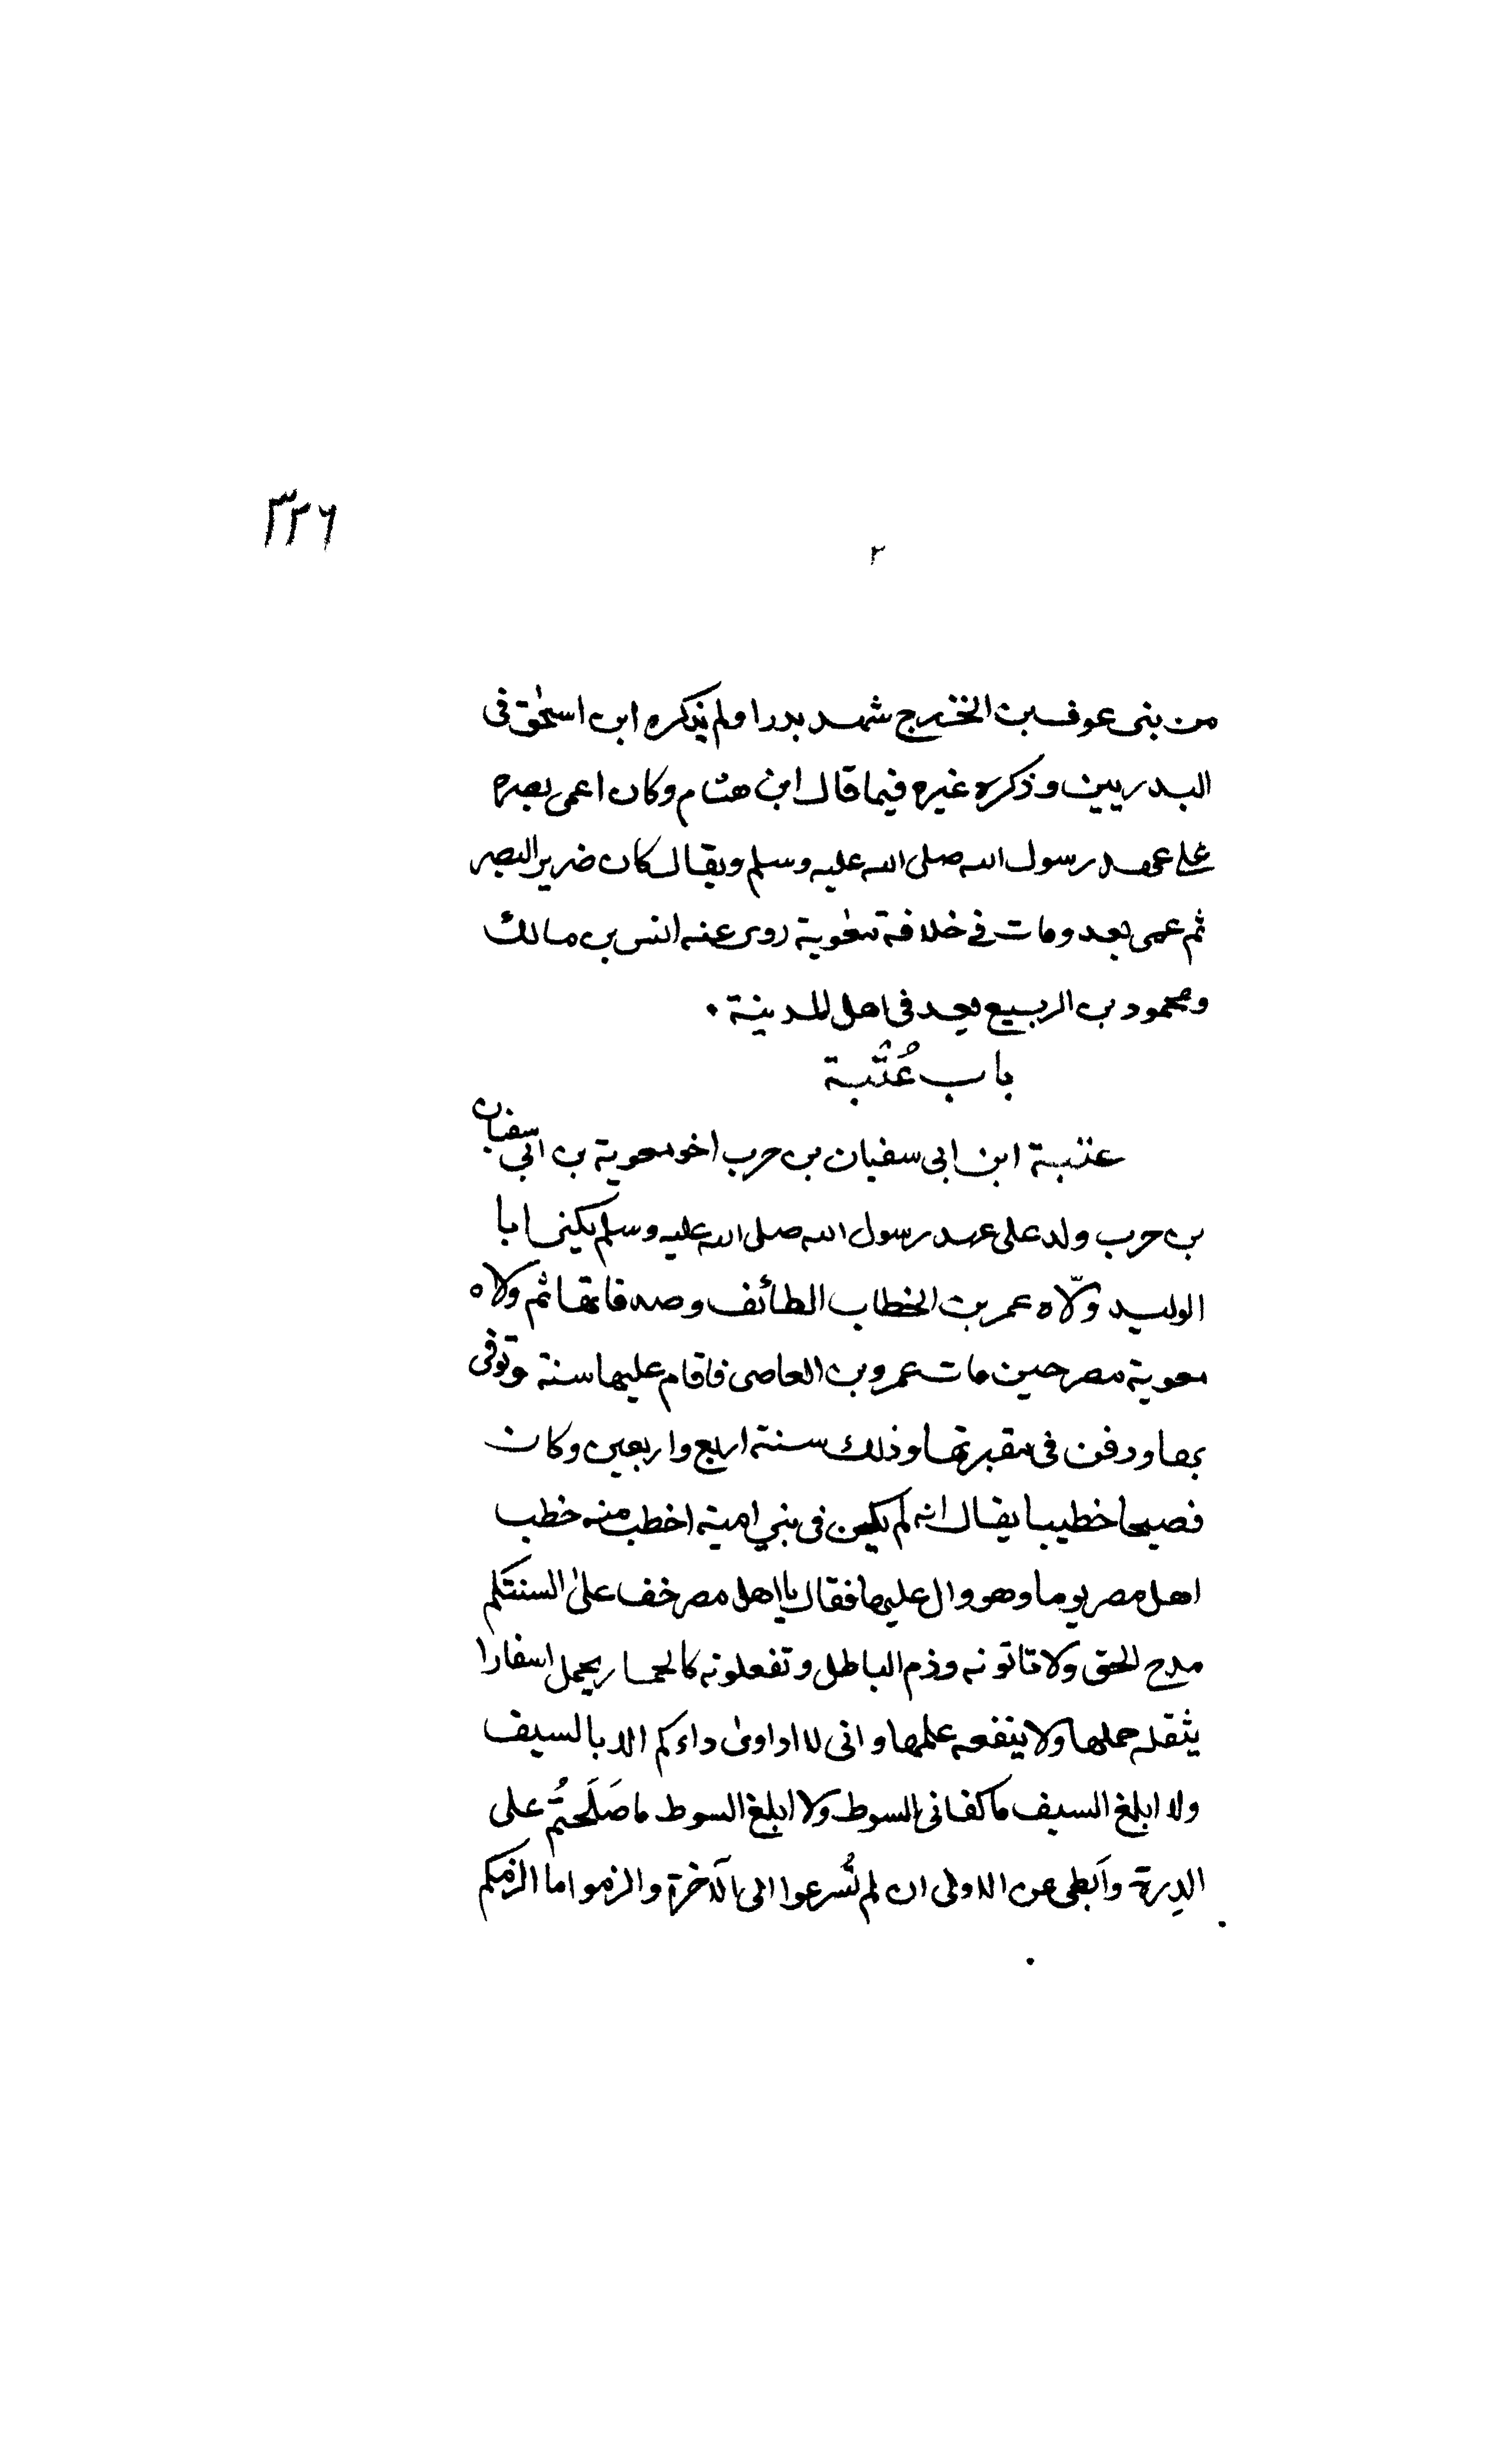 ٣٢٦
٢
من بنى عوف بن الخزرج شهد بدرا ولم يذكره ابن اسحٰق فى
البدريين وذكره غيره فيما قال ابن هشام وكان اعمى بصره
على عهد رسول الله صلى الله عليه وسلم ويقال كان ضرير البصر
ثم عمى بعد ومات في خلافة معٰوية روى عنه انس بن مالك
ومحمود بن الربيع يعد فى اهل المدينة ٠
باب عُتْبة
عتبة ابن ابى سفيان بن حرب اخو معوية بن ابي سفيان
بن حرب ولد على عهد رسول الله صلى الله عليه وسلم يكنى ابا
الوليد ولّاه عمر بن الخطاب الطائف وصدقاتها ثم ولاه
معوية مصر حين مات عمرو بن العاصى فاقام عليها سنة وتوفى
بها ودفن فى مقبرتها وذلك سنة اربع واربعين وكان
فصيحا خطيبا يقال انه لم يكن فى بني امية اخطب منه خطب
اهل مصر يوما وهو وال عليها فقال يا اهل مصر خف علىٰ السنتكم
مدح الحق ولا تاتونه وذم الباطل وتفعلونه كالحمار يحمل اسفارا
يثقله حملها ولا ينفعه علمها وانى لا اداوىٰ داءكم الا بالسيف
ولا ابلغ السيف ما كفانى السوط ولا ابلغ السوط ما صَلَحتُم على
الدِرة وأبطى عن الاولى ان لم تُسرعوا الى الآخرة والزموا ما الزمكم